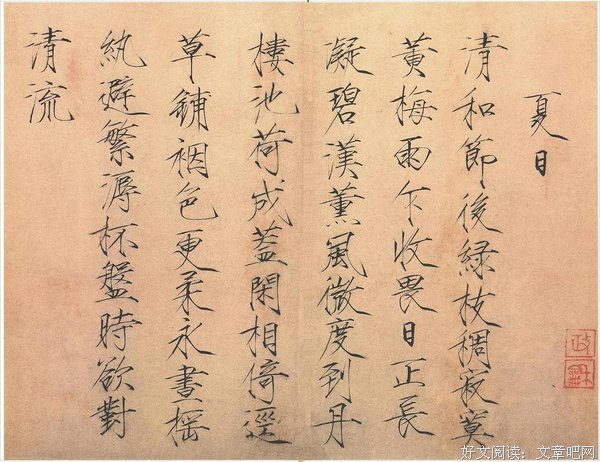 夏日
清和節後緑枝稠寂寞
黄梅雨乍收畏日正長
凝碧漢薰風微度到丹
樓池荷成蓋閑相倚逕
草鋪裀色更柔永晝摇
紈避繁溽杯盤時欲對
清流
政龢
好文阅读:文章吧网